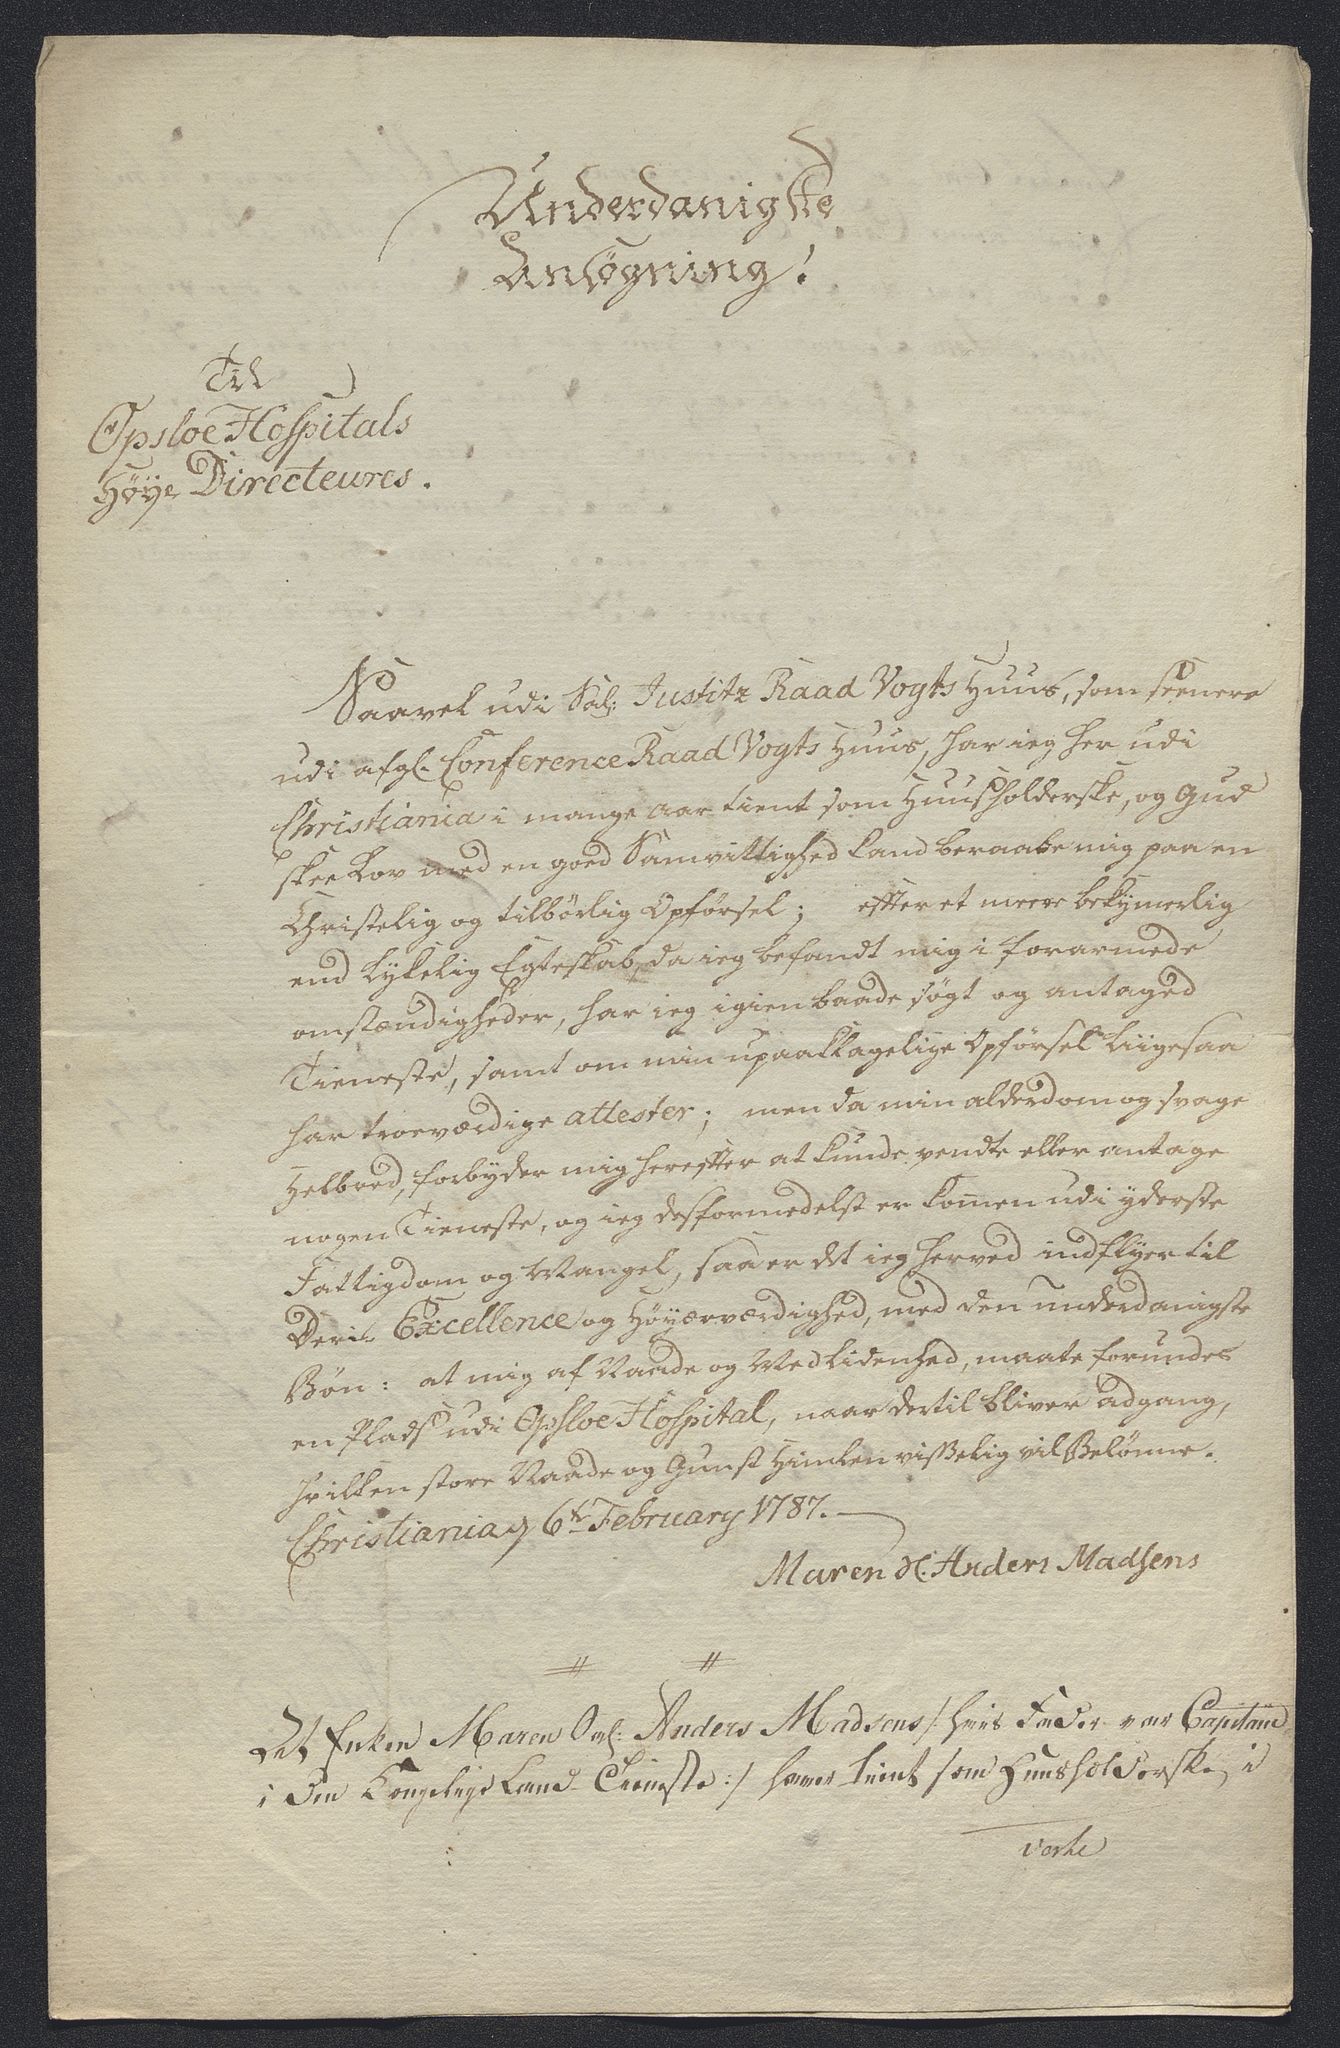 Underdanigste
Ansøgning!
Til
Opsloe Hospitals
Høye Directeurer.
Saavel udi Sal: Justitz Raad Vogts Huus, som seenere
udi afgl. Conference Raad Vogts Huus, har ieg her udi
Christiania i mange aar tient som Huusholderske, og Gud
skee Lov med en goed Samvittighed kand beraabe mig paa en
Christelig og tilbørlig Opførsel; effter et meere bekymerlig
end lykelig Egteskab, da ieg befandt mig i forarmede
omstændigheder, har ieg igien baade søgt og antaged
Tieneste, samt om min upaaklagelige Opførsel liigesaa
har troeværdige attester; men da min alderdom og svage
Helbred, forbyder mig hereffter at kunde vendte eller antage
nogen Tieneste, og ieg desformedelst er komen udi yderste
Fattigdom og Mangel, saa er det ieg herved indflyer til
Deris Excellence og Høyærværdighed, med den underdanigste
Bøn: at mig af Naade og Medlidenhed, maate forundes
en Plads udi Opsloe Hospital, naar dertil bliver adgang,
hvilken store Naade og Gunst Himlen visselig vil Belønne.
Christiania d 6te February 1787.
Maren Sl. Anders Madsens
Det Enken Maren Sal: Anders Madsens /: hvis Fader var Capitaine
i den Kongelige Land-Tieneste :/ haver tient som Huusholderske i